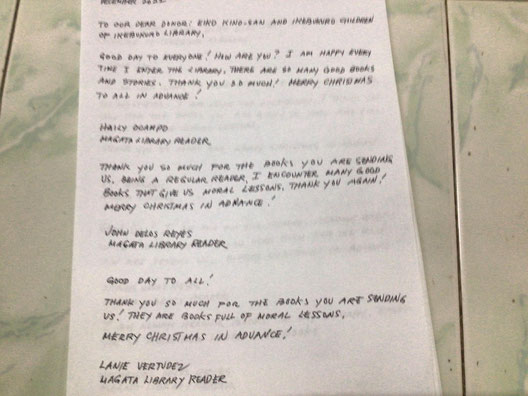 DECEMBER
TO OUR DEAR DONOR: EIKO KINO-SAN AND IKEBUKURO CHILDREN
OF IKEBUKURO LIBRARY,
GOOD DAY TO EVERYONE! HOW ARE YOU? I AM HAPPY EVERY
TIME I ENTER THE LIBRARY. THERE ARE SO MANY GOOD BOOKS
AND STORIES. THANK YOU SO MUCH! MERRY CHRISTMAS
TO ALL IN ADVANCE!
HAILY OCAMPO
MAGATA LIBRARY READER
THANK YOU SO MUCH FOR THE BOOKS YOU ARE SENDING
US. BEING A REGULAR READER, I ENCOUNTER MANY GOOD
BOOKS THAT GIVE US MORAL LESSONS. THANK YOU AGAIN!
MERRY CHRISTMAS IN ADVANCE!
JOHN DELOS REYES
MAGATA LIBRARY READER
GOOD DAY TO ALL!
THANK YOU SO MUCH FOR THE BOOKS YOU ARE SENDING
US! THEY ARE BOOKS FULL OF MORAL LESSONS.
MERRY CHRISTMAS IN ADVANCE!
LANIE VERTUDEZ
MAGATA LIBRARY READER